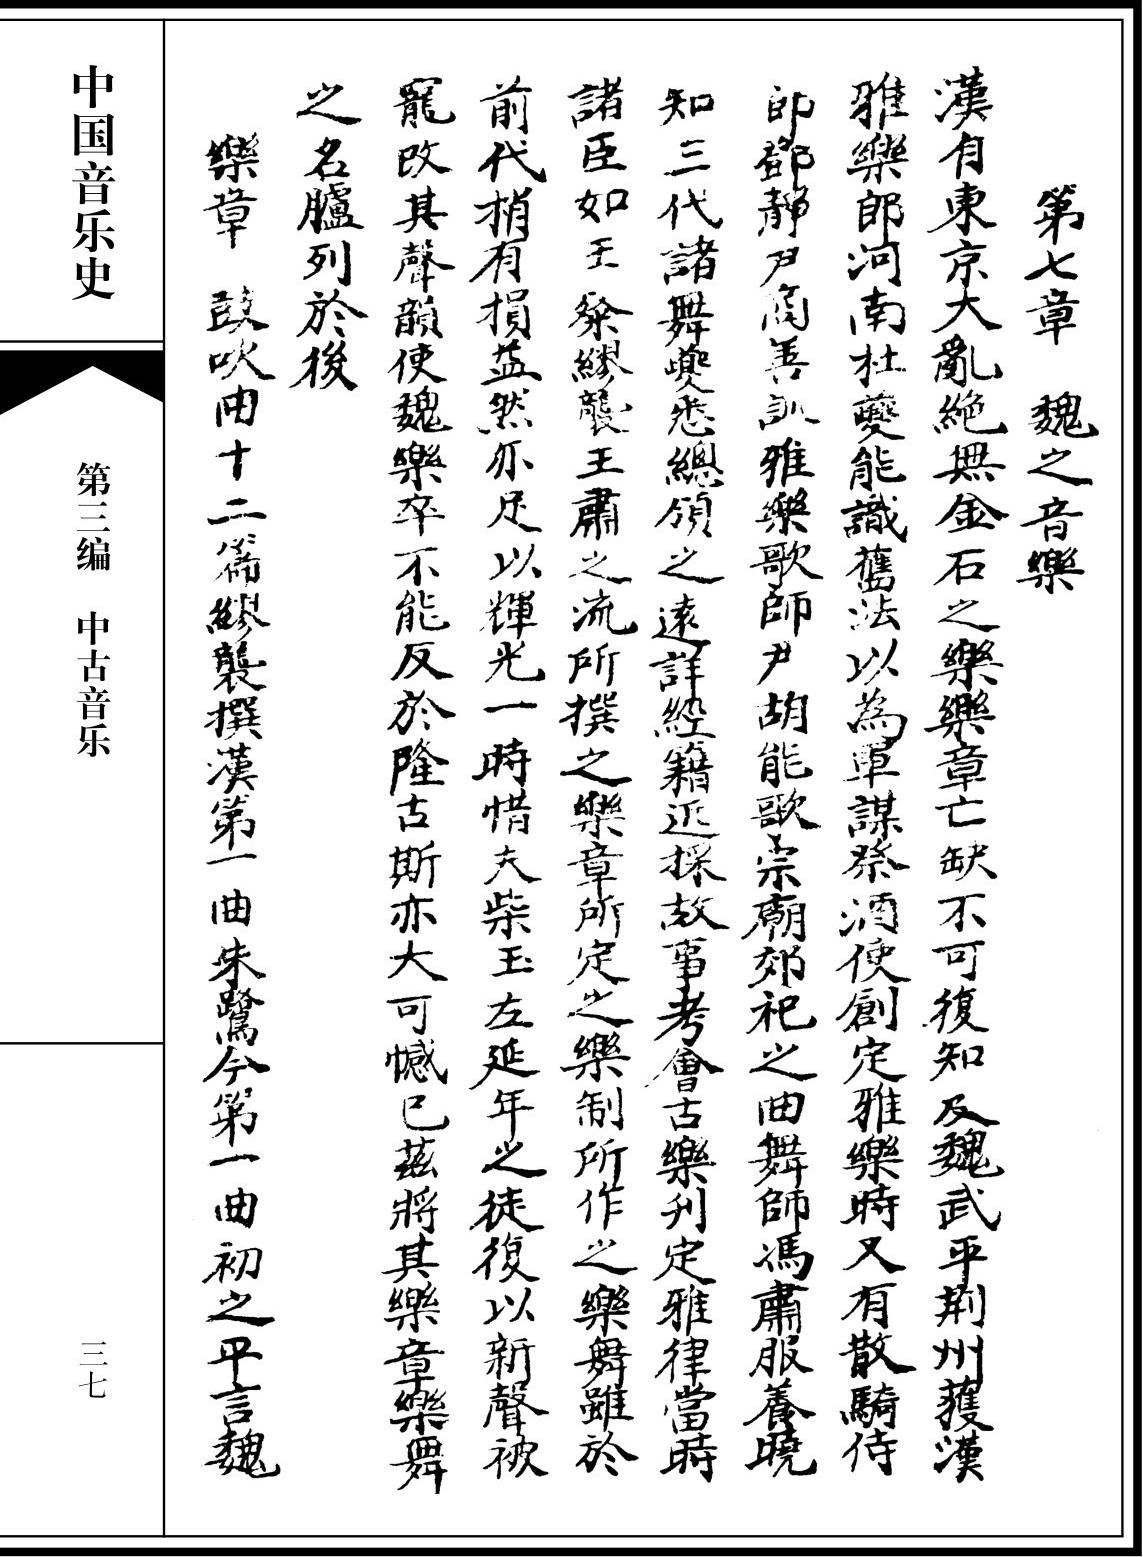 第七章　魏之音樂
漢自東京大亂絶無金石之樂樂章亡缺不可復知及魏武平荆州獲漢
雅樂郎河南杜夔能識舊法以為軍謀祭酒使創定雅樂時又有散騎侍
郎鄧靜尹商善訓雅樂歌師尹胡能歌宗廟郊祀之曲舞師馮肅服養曉
知三代諸舞夔悉總領之遠詳經籍近採故事考會古樂刋定雅律當時
諸臣如王粲繆襲王肅之流所撰之樂章所定之樂制所作之樂舞雖於
前代梢有損益然亦足以輝光一時惜夫柴玉左延年之徒復以新聲被
寵改其聲韻使魏樂卒不能反於隆古斯亦大可憾已茲將其樂章樂舞
之名臚列於後
樂章　鼓吹曲十二篇繆襲撰漢第一曲朱鷺今第一曲初之平言魏
中国音乐史
第三编　中古音乐
三七